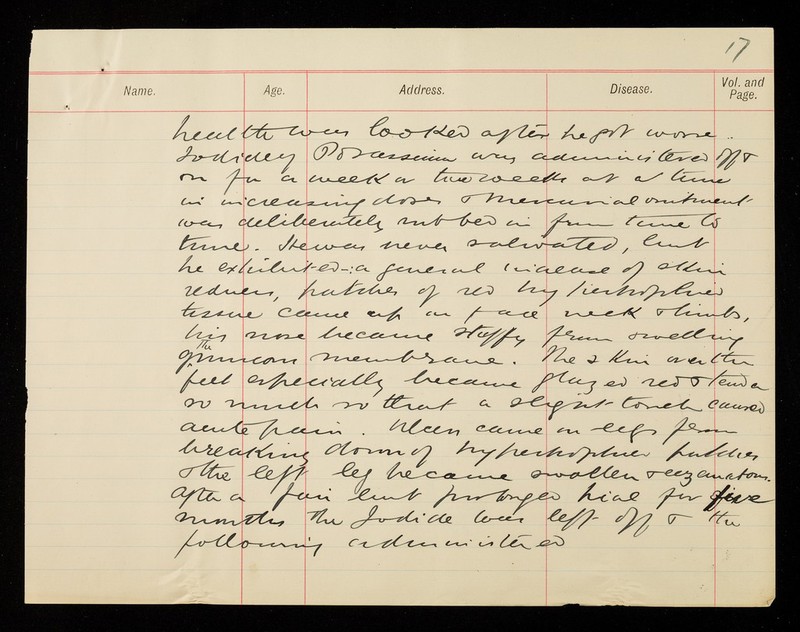 17
Name. Age. Address. Disease. Vol. and Page.
health was looked after he got worse.
Iodide of Potassium was administered off &
on for a week or two weeks at a time
in increasing doses & mercurial ointment
was deliberately rubbed in from time to
time. He was never salivated, but
he exhibited a general increase of skin
redness, patches of red hypertrophied
tissue came up on face neck & limbs,
his nose became stuffy from swelling
of the mucous membrane. The skin over the
feet especially became glazed red & tender
so much so that a slight touch caused
acute pain. Ulcers came on legs from
breaking down of hypertrophied patches
& the left leg became swollen & eczematous.
After a fair but prolonged trial for five
months the Iodide was left off & the
following administered